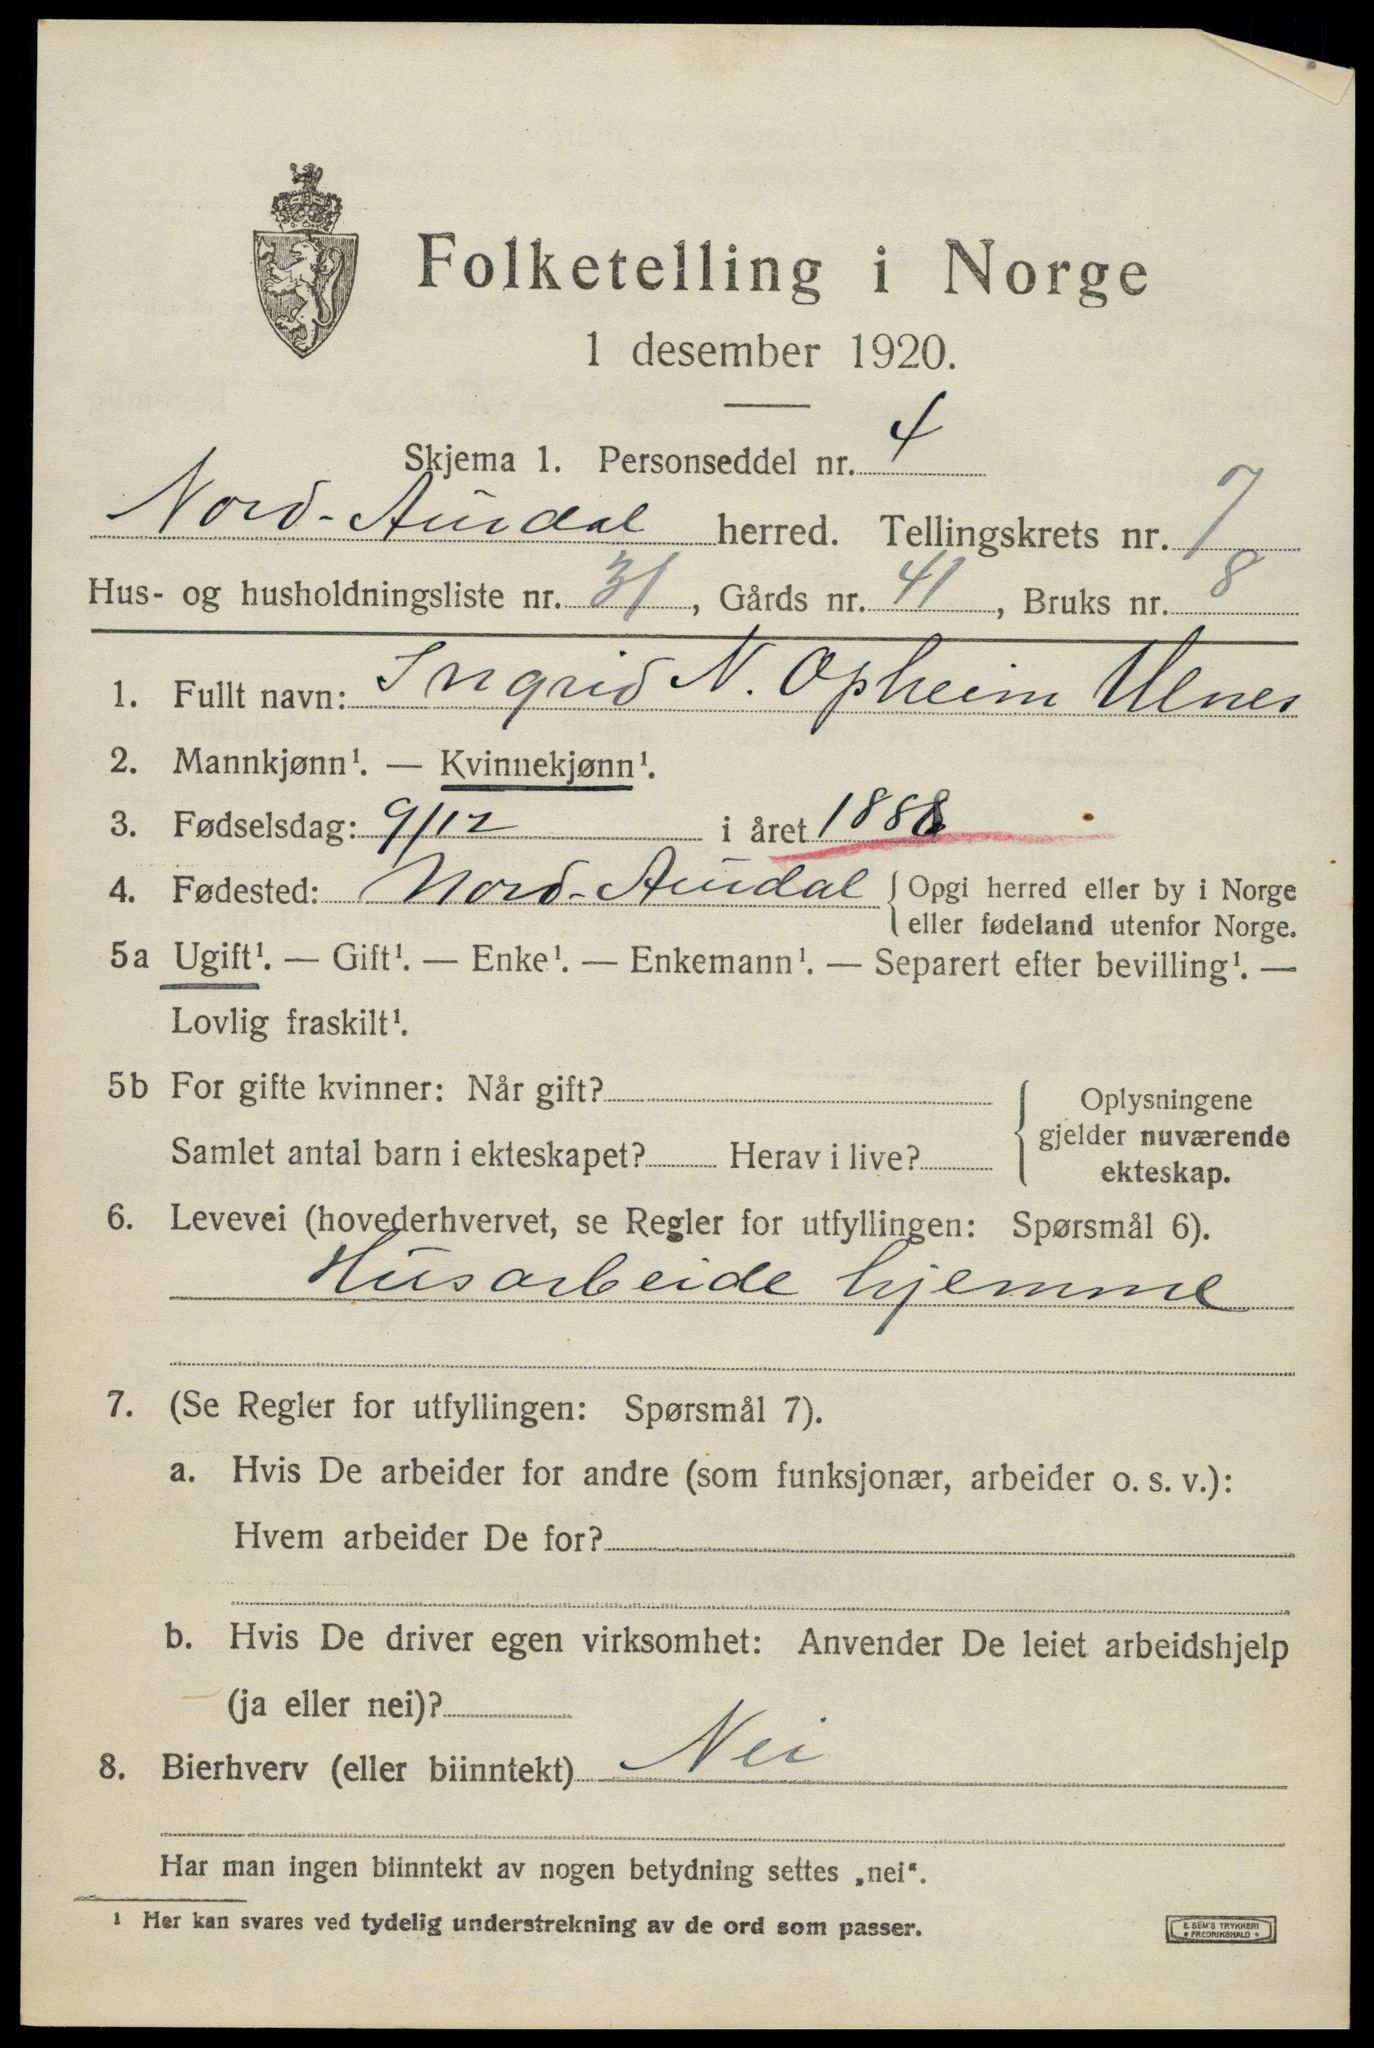 Folketelling i Norge
1 desember 1920.
Skjema 1. Personseddel nr. 4
Nord-Aurdal herred. Tellingskrets nr. 7
Hus- og husholdningsliste nr. 31, Gårds nr. 41, Bruks nr. 8
1. Fullt navn: Ingrid N. Opheim Ulnes
2. Mannkjønn¹. — Kvinnekjønn¹.
3. Fødselsdag: 9/12 i året 1888
4. Fødested: Nord-Aurdal { Opgi herred eller by i Norge
eller fødeland utenfor Norge.
5a Ugift¹. — Gift¹. — Enke¹. — Enkemann¹. — Separert efter bevilling¹. —
Lovlig fraskilt¹.
5b For gifte kvinner: Når gift?
Samlet antal barn i ekteskapet? Herav i live?
Oplysningene
gjelder nuværende
ekteskap.
6. Levevei (hovederhvervet, se Regler for utfyllingen: Spørsmål 6).
Husarbeide hjemme
7. (Se Regler for utfyllingen: Spørsmål 7).
a. Hvis De arbeider for andre (som funksjonær, arbeider o. s. v.):
Hvem arbeider De for?
b. Hvis De driver egen virksomhet: Anvender De leiet arbeidshjelp
(ja eller nei)?
8. Bierhverv (eller biinntekt) Nei
Har man ingen biinntekt av nogen betydning settes „nei“.
¹ Her kan svares ved tydelig understrekning av de ord som passer.
E. SEM'S TRYKKERI
* FREDRIKSHALD *